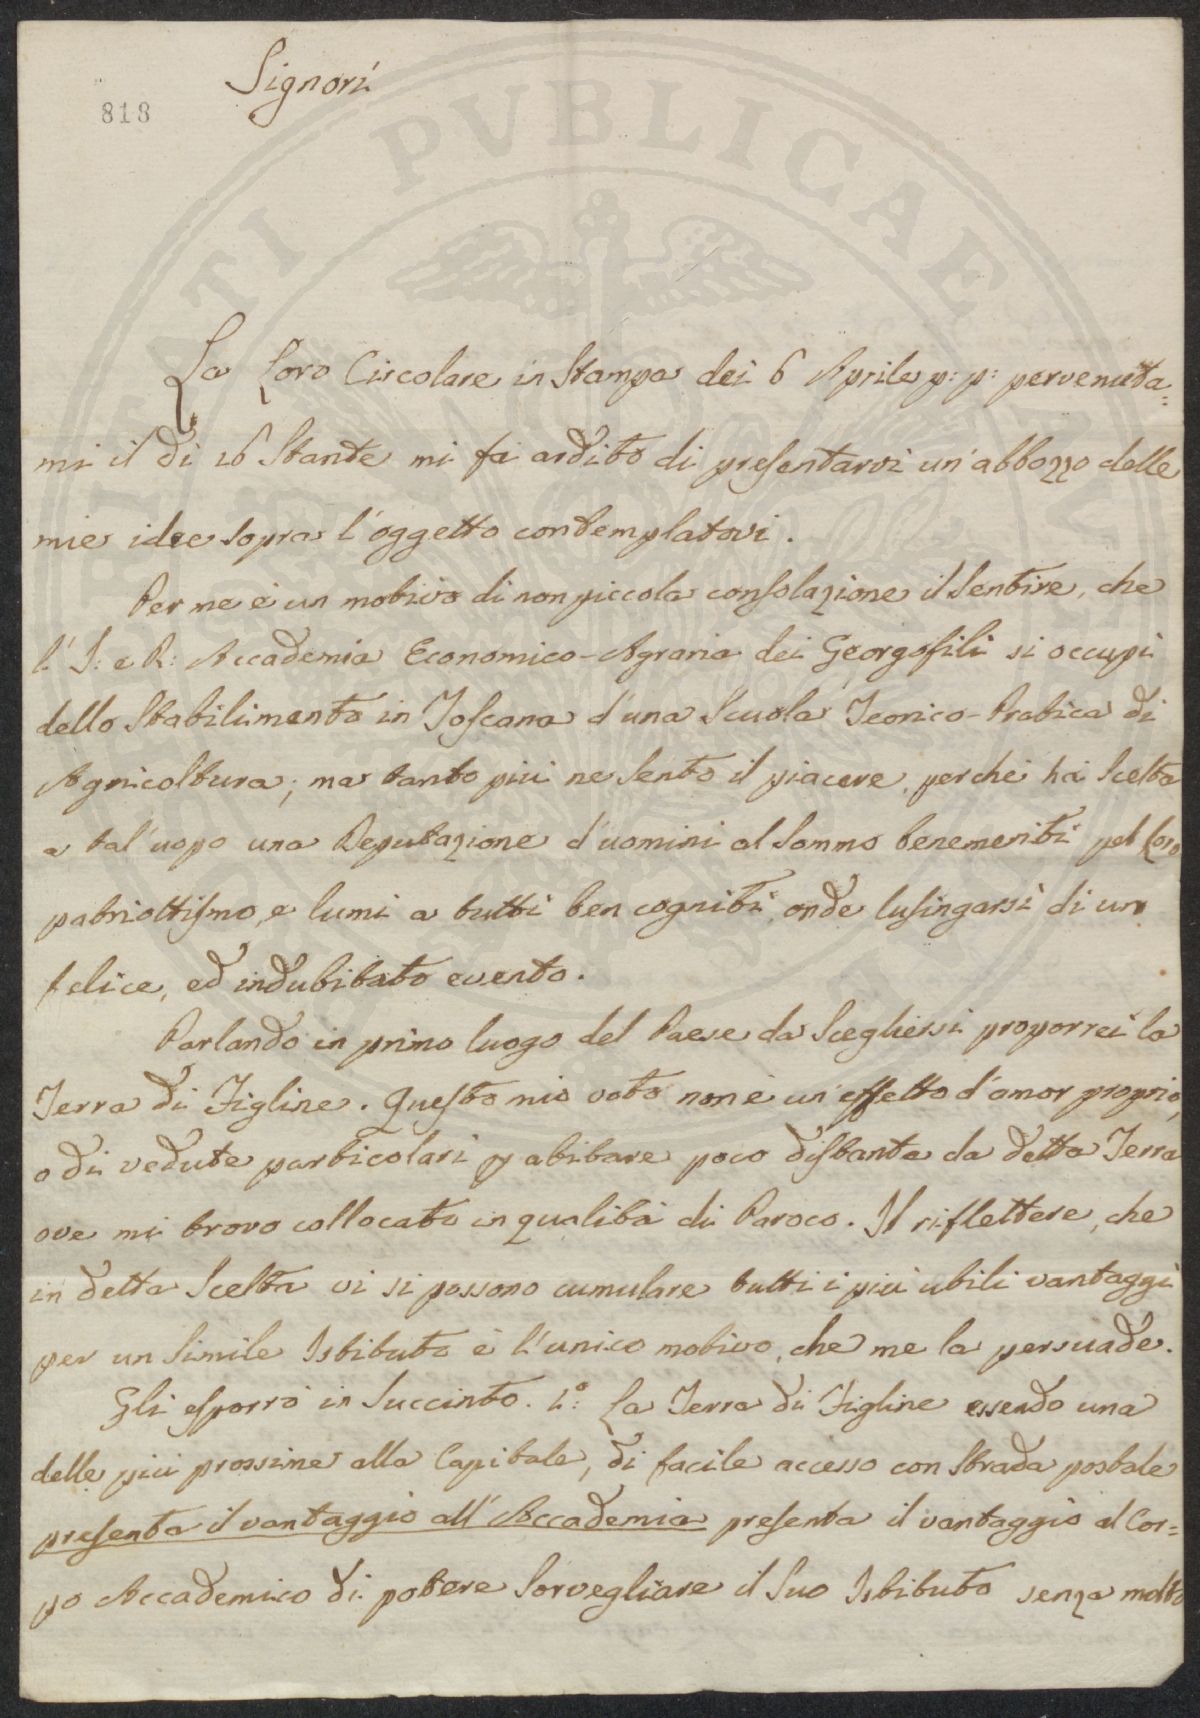 Signori
818
La Loro Circolare in Stampa dei 6 Aprile p: p: pervenuta=
mi il dì 16 Stante mi fà ardito di presentarvi un'abbozzo delle
mie idee sopra l'oggetto contemplatovi.
Per me è un motivo di non piccola consolazione il sentire, che
l'I: e R: Accademia Economico-Agraria dei Georgofili si occupi
dello Stabilimento in Toscana d'una Scuola Teorico-Pratica di
Agricoltura; ma tanto più ne sento il piacere, perchè hà Scelta
a tal'uopo una Deputazione d'uomini al Sommo benemeriti pel Loro
patriottismo, e lumi a tutti ben cogniti, onde lusingarsi di un
felice, ed indubitato evento.
Parlando in primo luogo del Paese da Scegliersi proporrei la
Terra di Figline. Questo mio voto non è un'effetto d'amor proprio,
o di vedute particolari p abitare poco distante da detta Terra
ove mi trovo collocato in qualità di Paroco. Il riflettere, che
in detta Scelta vi si possono cumulare tutti i più utili vantaggi
per un Simile Istituto è l'unico motivo, che me la persuade.
Gli esporrò in Succinto. 1°: La Terra di Figline essendo una
delle più prossime alla Capitale, di facile accesso con Strada postale
presenta il vantaggio all'Accademia presenta il vantaggio al Cor=
po Accademico di potere Sorvegliare il Suo Istituto senza molto